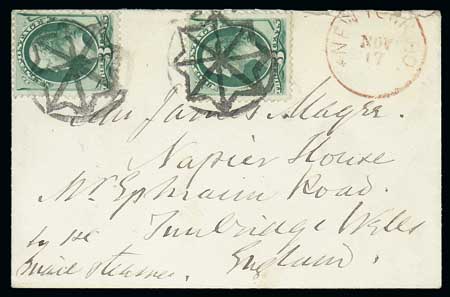 NEW YORK
NOV
17
James Magee
Napier House
Mt. Ephraim Road.
Tunbridge Wells
England.
by 1st
mail steamer.